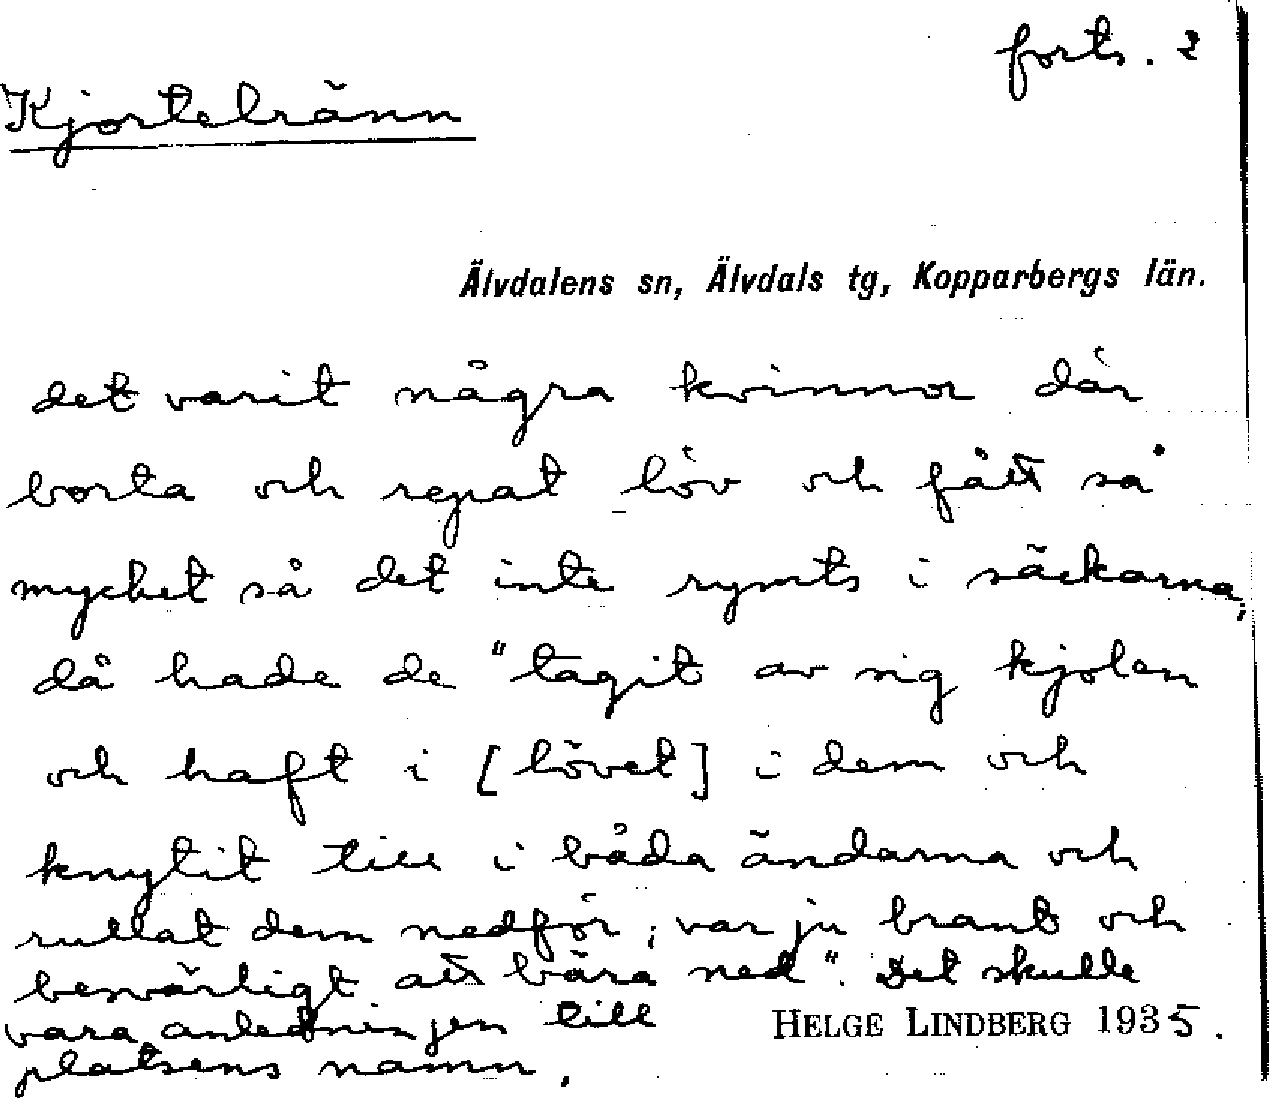 forts. 2
Kjortelränn
Älvdalens sn, Älvdals tg, Kopparbergs län.
det varit några kvinnor där
borta och repat löv och fått så
mycket så det inte rymts i säckarna;
då hade de "tagit av sig kjolen
och haft i [lövet] i dem och
knytit till i båda ändarna och
rullat dem nedför; var ju brant och
besvärligt att bära ned". Det skulle
vara anledningen till
platsens namn.
HELGE LINDBERG 1935.